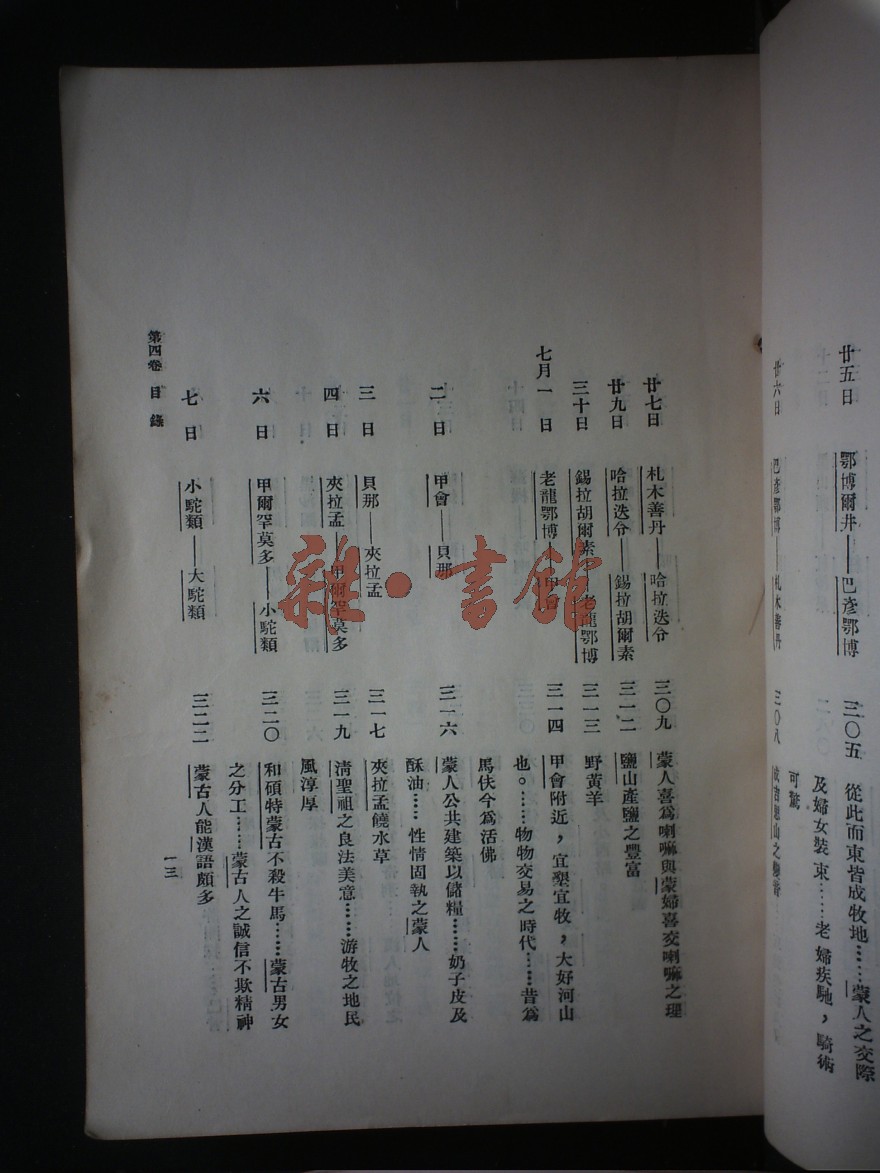 廿五日　鄂博爾井——巴彥鄂博　三〇五　從此而東皆成牧地……蒙人之交際
及婦女裝束……老婦疾馳，騎術
可驚
廿六日　巴彥鄂博——札木善丹　三〇八　山之
廿七日　札木善丹——哈拉迭令　三〇九　蒙人喜爲喇嘛與蒙婦喜交喇嘛之理
廿九日　哈拉迭令——錫拉胡爾素　三一二　鹽山產鹽之豐富
三十日　錫拉胡爾素——老龍鄂博　三一三　野黃羊
七月一日　老龍鄂博——甲會　三一四　甲會附近，宜墾宜牧，大好河山
也。……物物交易之時代……昔爲
馬伕今爲活佛
二日　甲會——貝那　三一六　蒙人公共建築以儲糧……奶子皮及
酥油……性情固執之蒙人
三日　貝那——夾拉孟　三一七　夾拉孟饒水草
四日　夾拉孟——甲爾罕莫多　三一九　清聖祖之良法美意……游牧之地民
風淳厚
六日　甲爾罕莫多——小駝類　三二〇　和碩特蒙古不殺牛馬……蒙古男女
之分工……蒙古人之誠信不欺精神
七日　小駝類——大駝類　三二二　蒙古人能漢語頗多
第四卷　目錄　一三
雜·書館